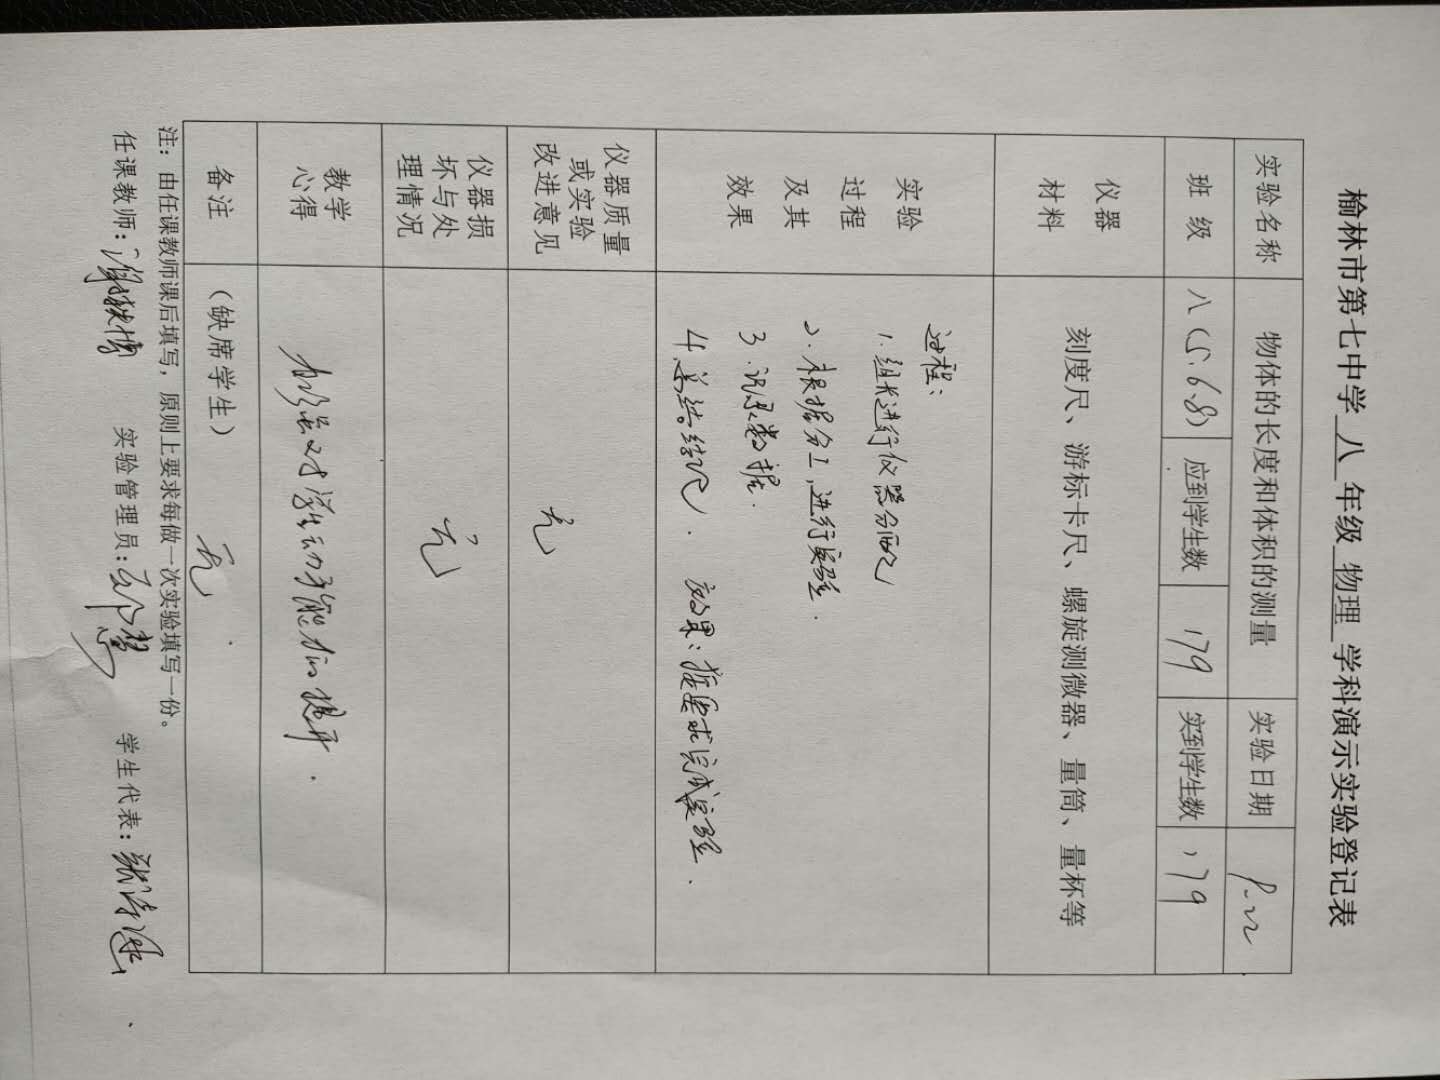 榆林市第七中学 八 年级 物理 学科演示实验登记表
实验名称 物体的长度和体积的测量 实验日期
班级 八(5.6.8) 应到学生数 179 实到学生数 179
仪器材料 刻度尺、游标卡尺、螺旋测微器、量筒、量杯等
实验过程及其效果
过程:
1.组长进行仪器分配
2.根据分工,进行实验.
3.记录数据.
4.总结结论. 效果:按要求完成实验.
仪器质量或实验改进意见 无
仪器损坏与处理情况 无
教学心得 加强对学生动手能力的提升.
备注 (缺席学生) 无.
注:由任课教师课后填写,原则上要求每做一次实验填写一份。
任课教师: 实验管理员: 学生代表: